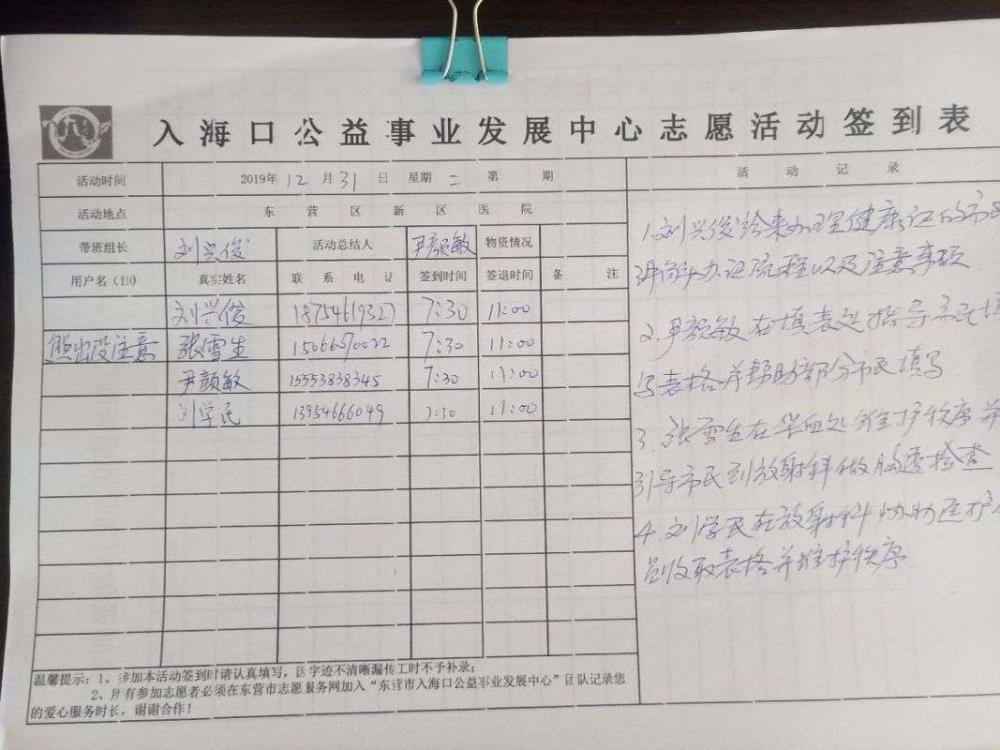 入海口公益事业发展中心志愿活动签到表
活动时间 2019年12月31日 星期二 第 期
活动地点 东营区新区医院
带班组长 刘兴俊 活动总结人 尹颜敏 物资情况
用户名（ID） 真实姓名 联系电话 签到时间 签退时间 备注
刘兴俊 18754619327 7:30 11:00
出没注意 张雪生 15066070022 7:30 11:00
尹颜敏 15553838345 7:30 11:00
刘学民 13954666049 7:30 11:00
活动记录
1.刘兴俊给来办理健康证的市
讲解办证流程以及注意事项
2.尹颜敏在填表处指导市民填
写表格并帮助部分市民填写
3.张雪生在采血处维护秩序并
引导市民到放射科做胸透检查
4.刘学民在放射科协助医护人
员收取表格并维护秩序
温馨提示：1、参加本活动签到时请认真填写，因字迹不清晰漏传工时不予补录；
2、所有参加志愿者必须在东营市志愿服务网加入“东营市入海口公益事业发展中心”团队记录您
的爱心服务时长，谢谢合作！